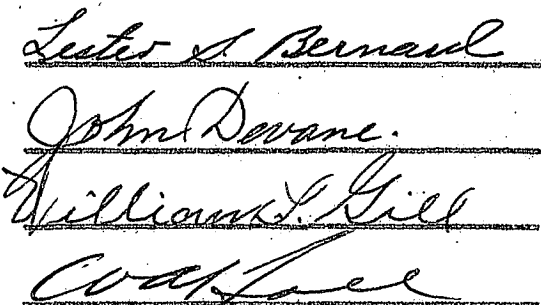 Lester S. Bernard
John Devane.
William L. Gill